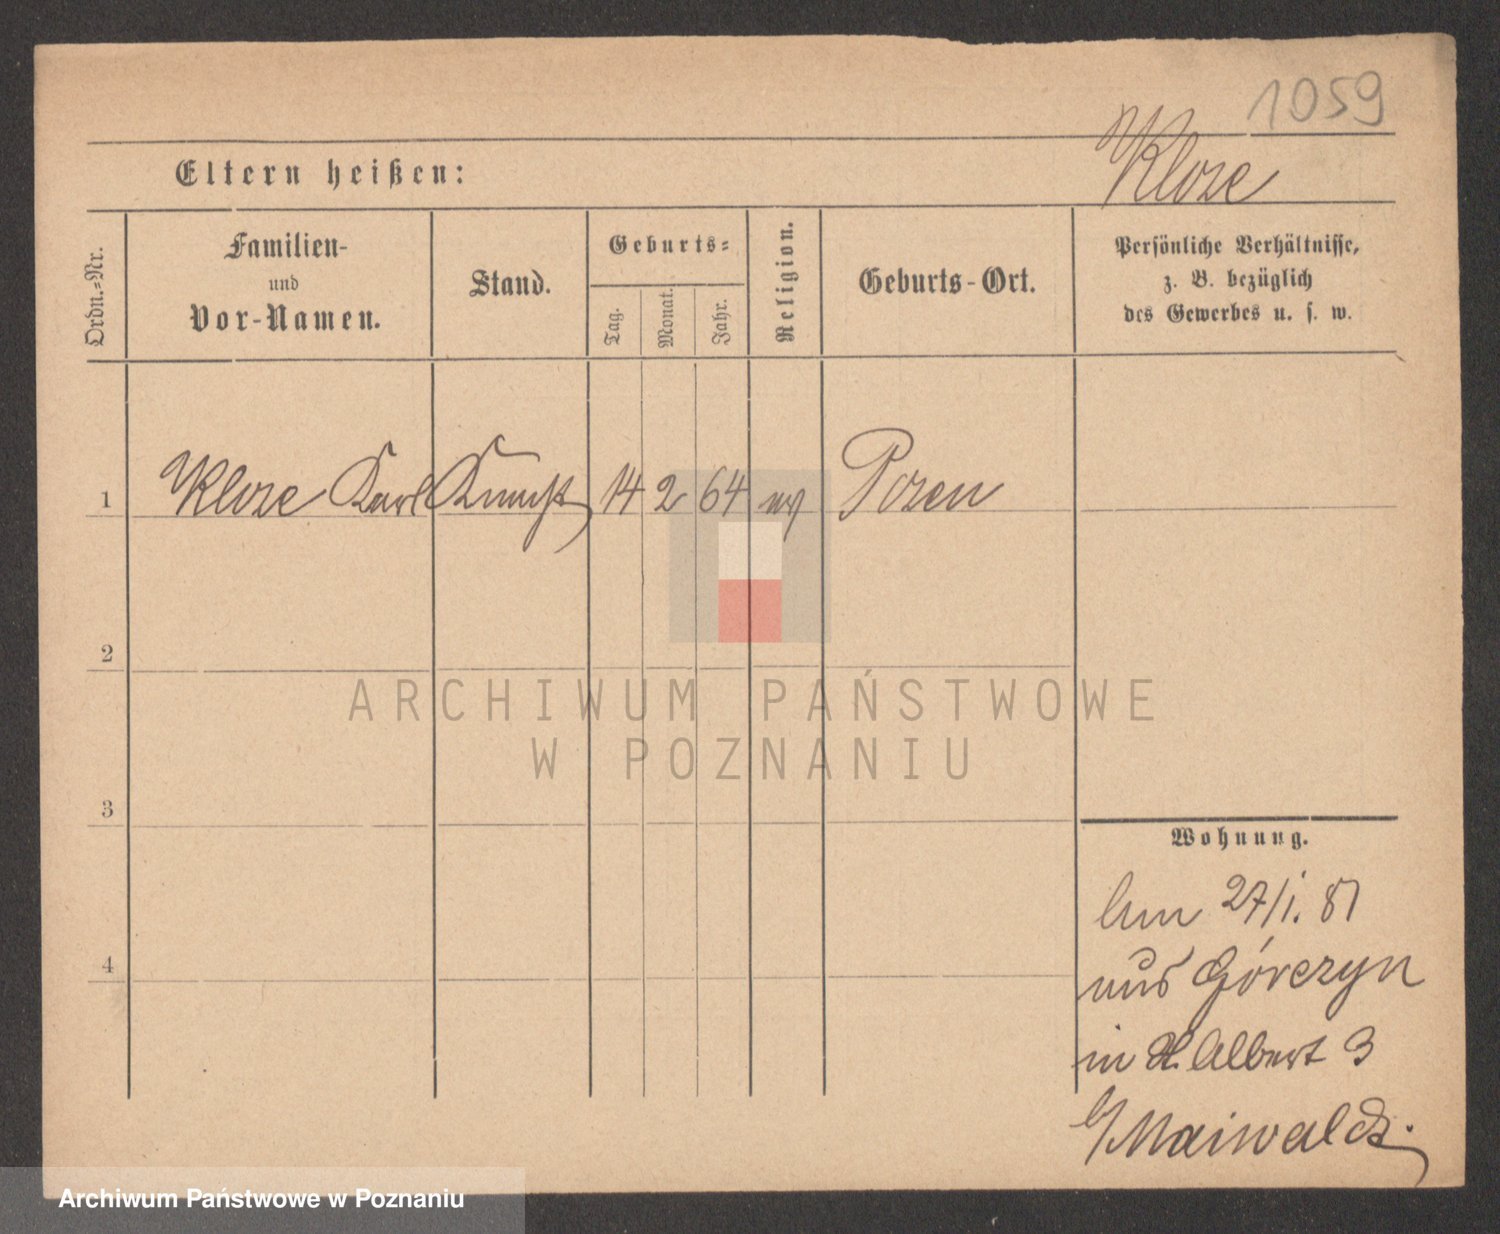 1059
Kloze
Eltern heißen:
Ordn.-Nr.
Familien-
und
Vor-Namen.
Stand.
Geburts-
Tag.
Monat.
Jahr.
Religion.
Geburts-Ort.
Persönliche Verhältnisse,
z. B. bezüglich
des Gewerbes u. s. w.
1 Kloze Karl 14 2 64 Pozen
2
3
4
ARCHIWUM PAŃSTWOWE
W POZNANIU
Wohnung.
27/1. 81
aus Górczyn
in St. Albert 3
b/ Maiwald
Archiwum Państwowe w Poznaniu